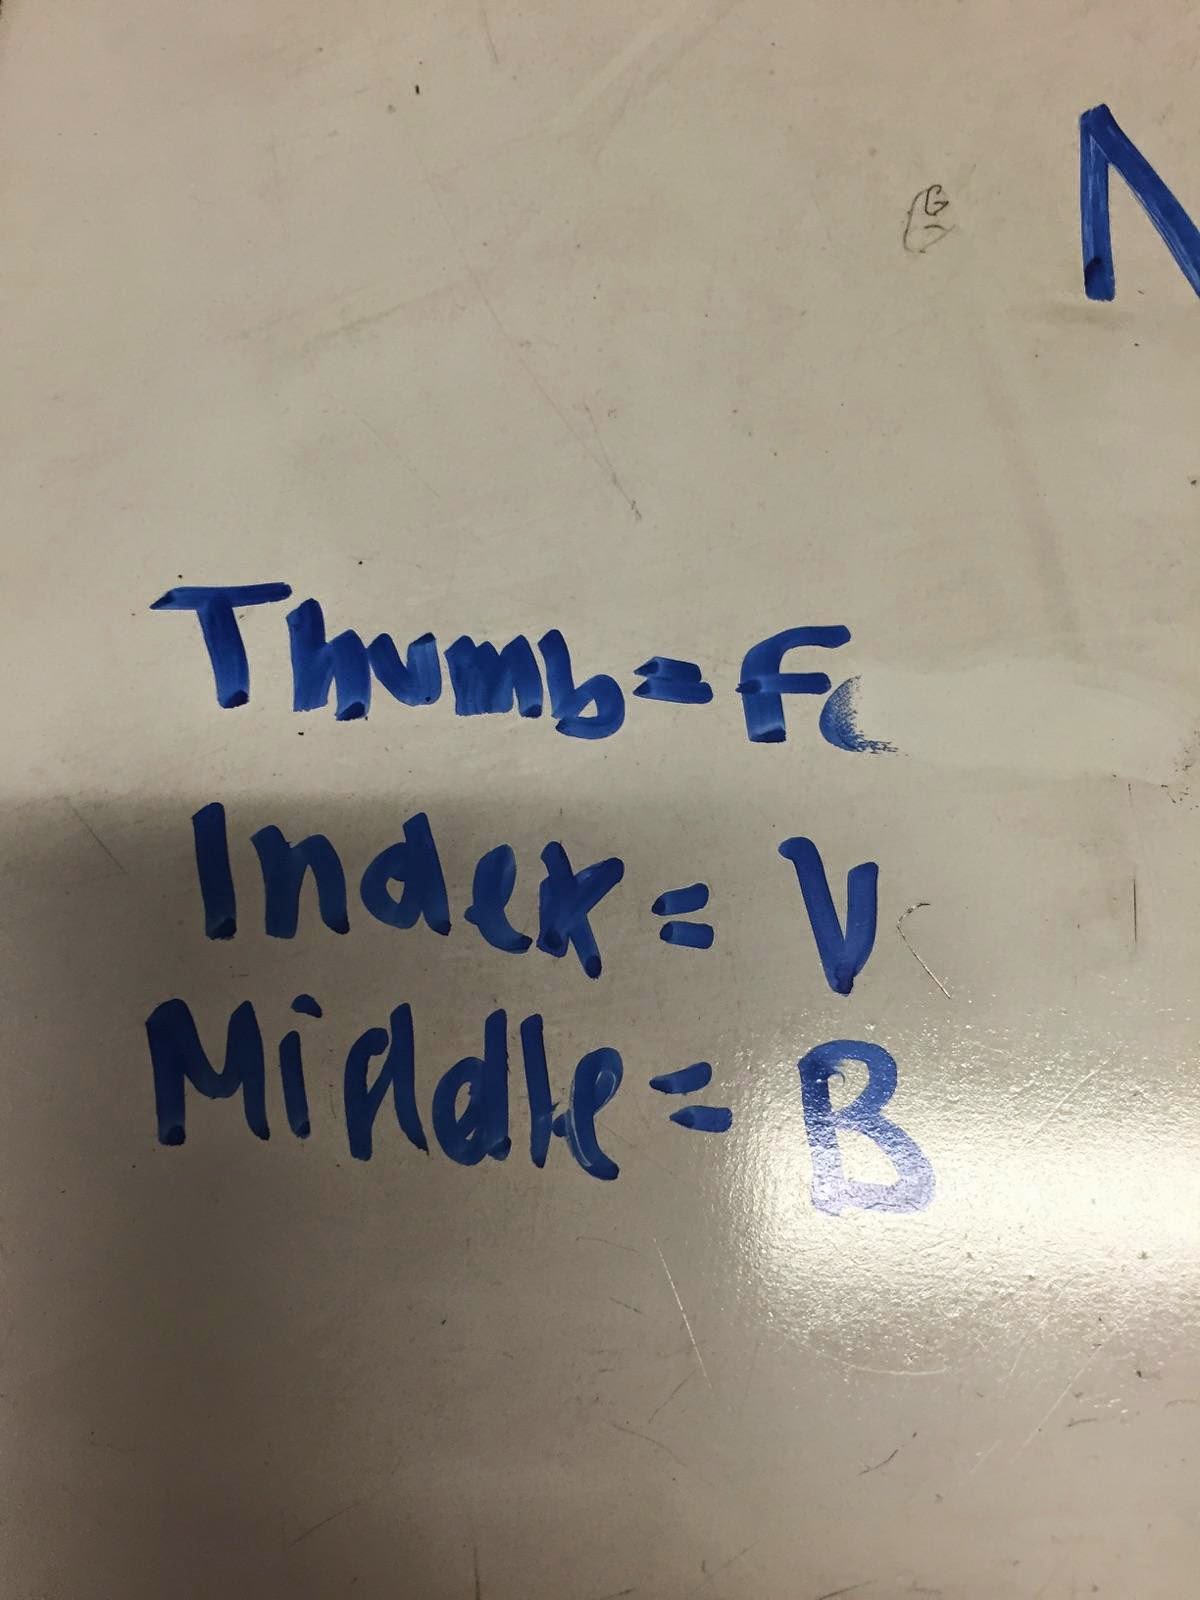 N
Thumb = F
Index = V
Middle = B